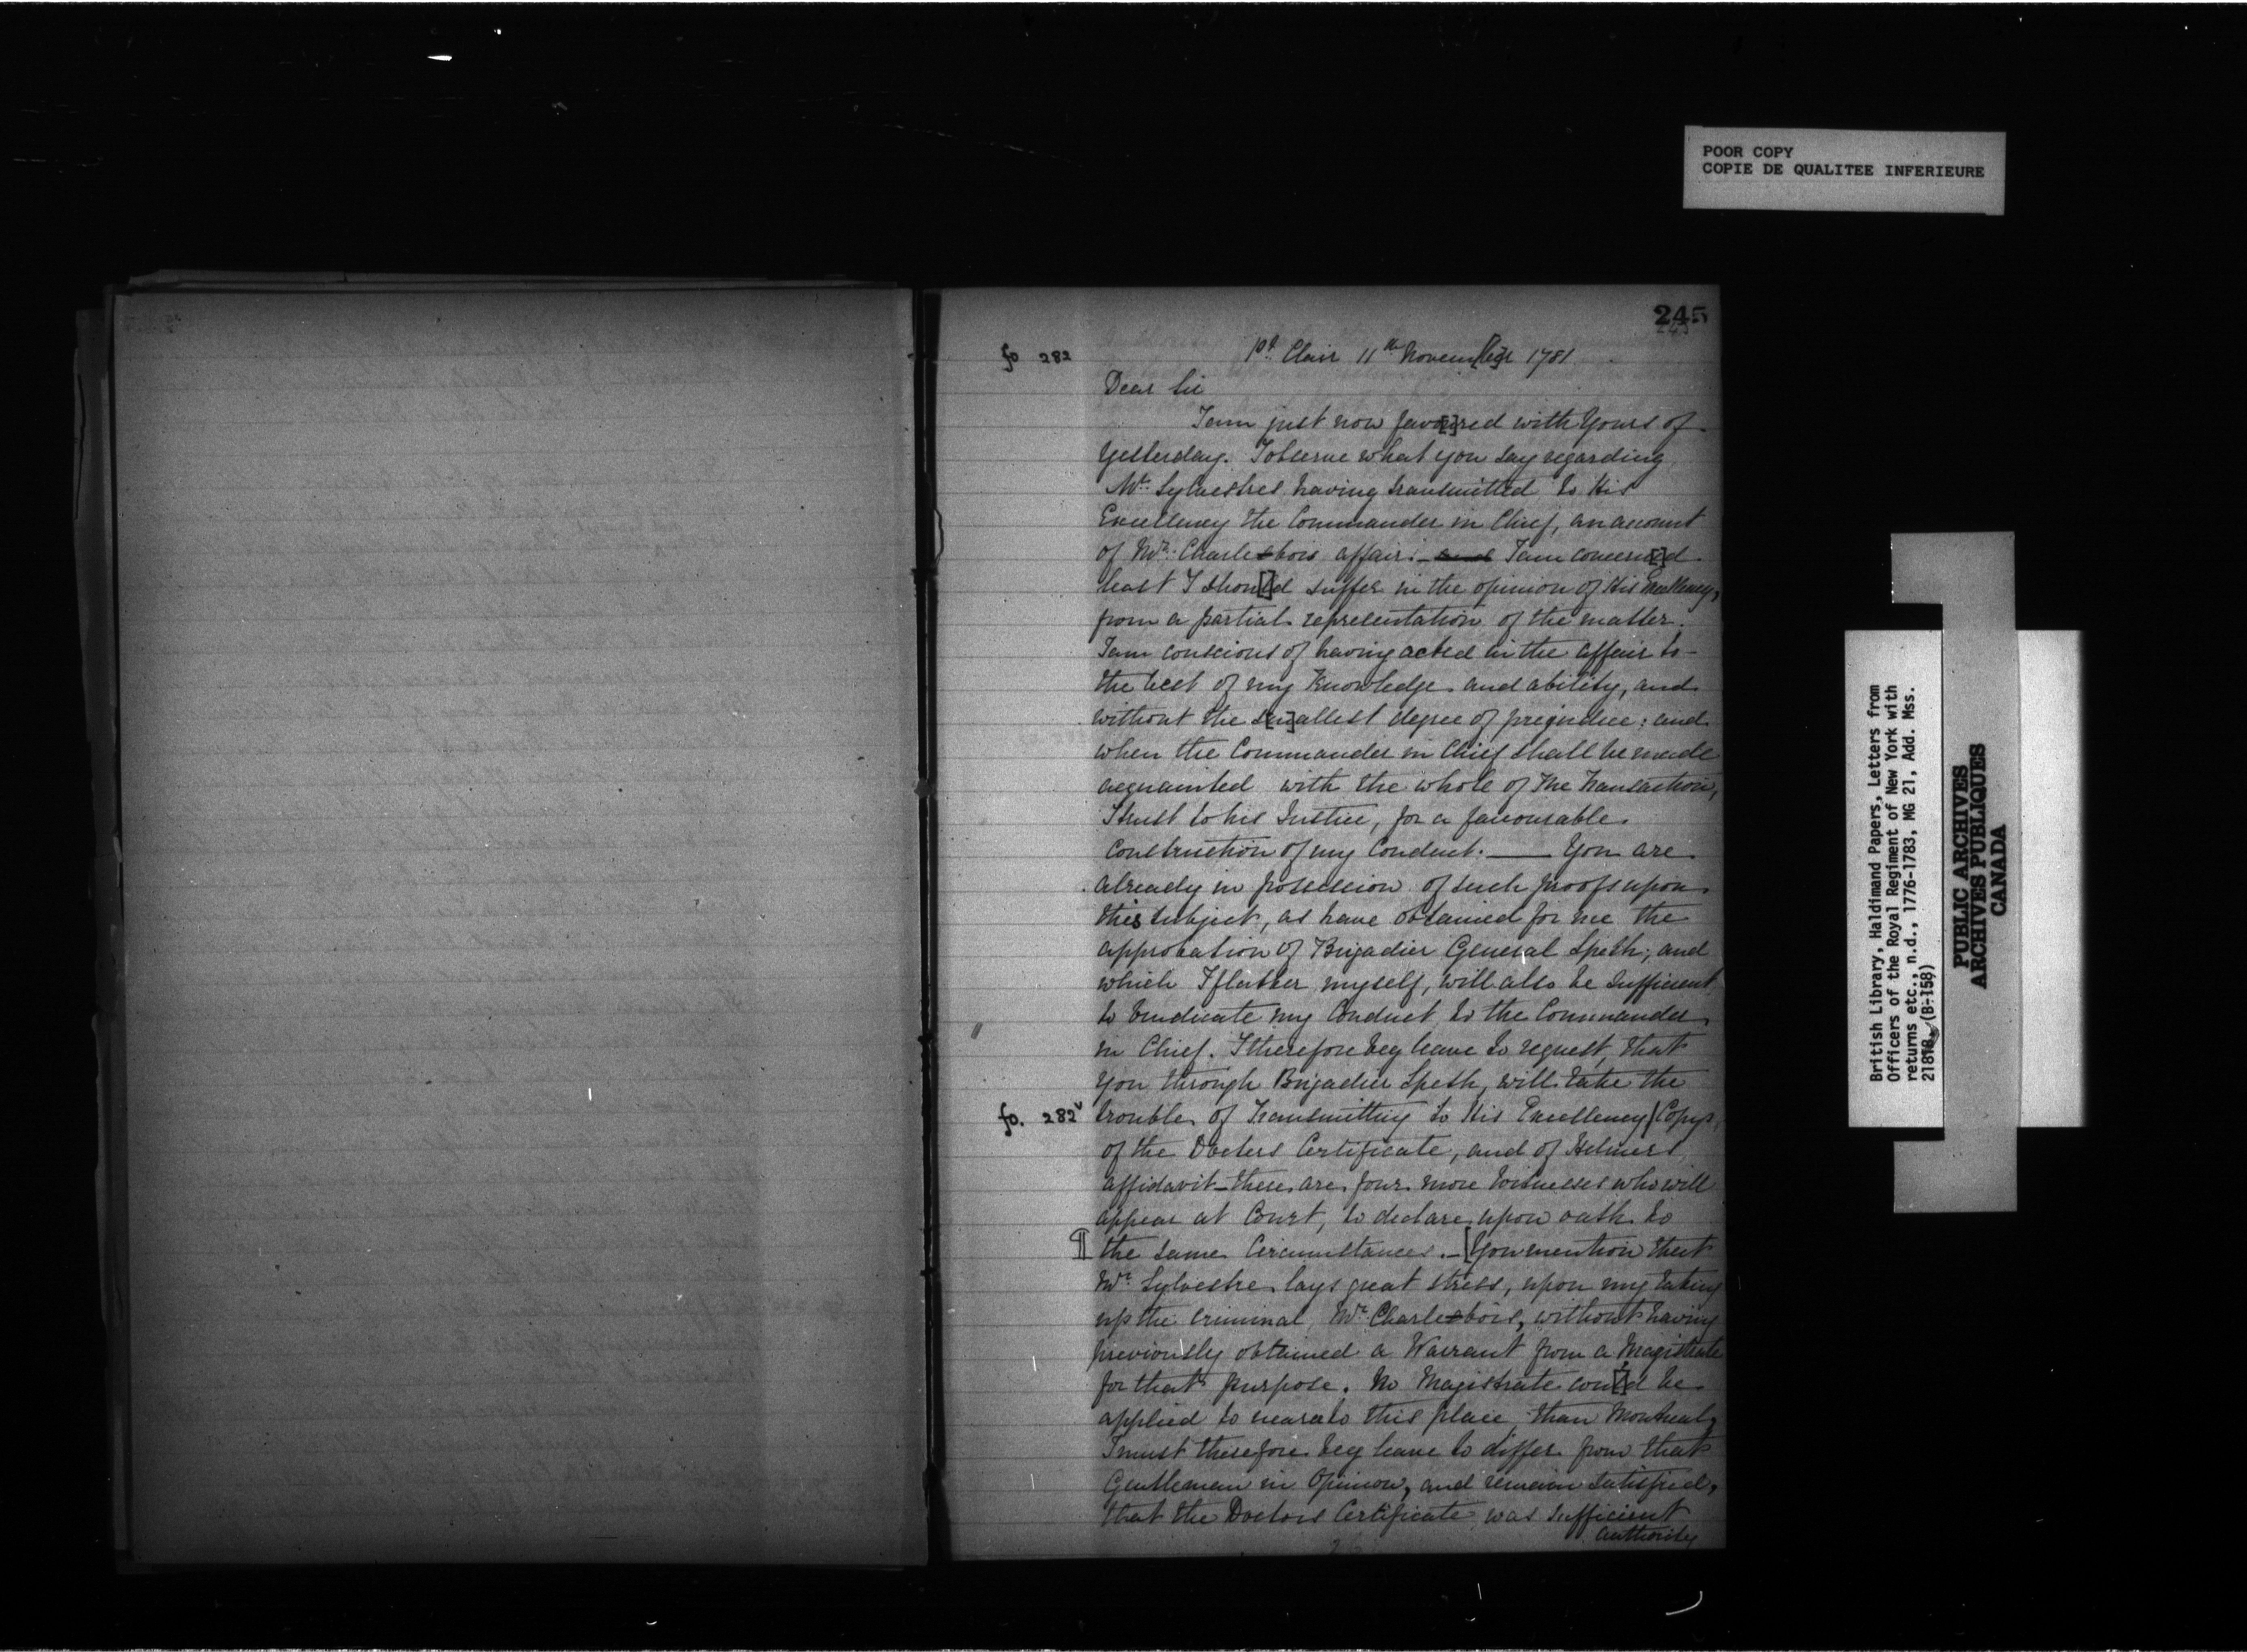 POOR COPY
COPIE DE QUALITEE INFERIEURE
245
fo 282
Pt. Clair 11th Novem[be]r 1781
Dear Sir
I am just now favo[u]red with Yours of
Yesterday. I observe what you say regarding
Mr. Sylvestres having transmitted to His
Excellency the Commander in Chief, an account
of Mr. Charlebois affair. I am concern[e]d
least I shou[l]d suffer in the opinion of His Excellency,
from a partial representation of the matter.
I am conscious of having acted in the affair to
the best of my Knowledge and ability, and
without the s[m]allest degree of prejudice: and
when the Commander in Chief shall be made
acquainted with the whole of the Transaction,
I trust to his Justice, for a favourable
Construction of my Conduct. — You are
already in possession of such proofs upon
this subject, as have obtained for me the
approbation of Brigadier General Speth; and
which I flatter myself, will also be sufficient
to vindicate my Conduct to the Commander
in Chief. I therefore beg leave to request, that
you through Brigadier Speth, will take the
fo. 282v trouble of Transmitting to His Excellency / Copys
of the Doctors Certificate, and of Helmers
affidavit - there are four more Witnesses who will
appear at Court, to declare upon oath to
¶ the same Circumstances. - [You mention that
Mr. Sylvestre lays great stress, upon my taking
up the criminal Mr. Charlebois, without having
previously obtained a Warrant from a Magistrate
for that purpose. No Magistrate cou[l]d be
applied to nearer to this place than Montreal,
I must therefore beg leave to differ from that
Gentleman in Opinion, and remain satisfied,
that the Doctors Certificate was sufficient
authority
British Library, Haldimand Papers, Letters from
Officers of the Royal Regiment of New York with
returns etc., n.d., 1776-1783, MG 21, Add. Mss.
21818 (B-158)
PUBLIC ARCHIVES
ARCHIVES PUBLIQUES
CANADA